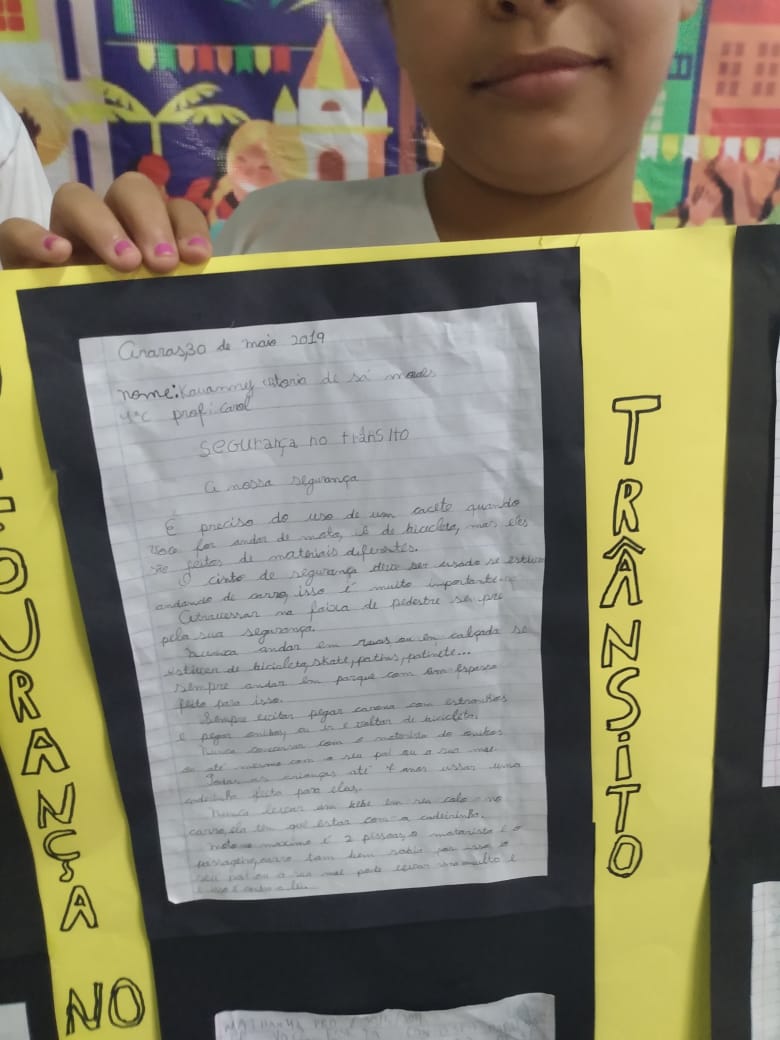 Araras,30 de maio 2019
nome: Kauanny vitoria de sá
4ºC prof: Carol
Segurança no trânsito
A nossa segurança
É preciso do uso de um cacete quando
voce for andar de moto, e de bicicleta, mas eles
são feitos de materiais diferentes.
O cinto de segurança deve ser usado se estiver
andando de carro, isso é muito importante
Atravessar na faixa de pedestre sempre
pela sua segurança.
Nunca andar em ruas ou em calçada se
estiver de bicicleta, skate, patins, patinete...
Sempre andar em parque com um espaço
feito para isso.
Sempre evitar pegar carona com estranhos
e pegar onibus, ou ir e voltar de bicicleta.
Nunca conversar com o motorista do onibus
ou até mesmo com o seu pai ou a sua mãe.
Todas as crianças até 7 anos usar uma
cadeirinha feita para elas.
Nunca levar um bebe em seu colo no
carro, ela tem que estar com a cadeirinha.
moto o maximo é 2 pessoas, o motorista e o
passageiro, carro tam bem por isso o
seu pai ou a sua mãe pode levar uma multa e
e isso é contra a lei.
SEGURANÇA NO
TRÂNSiTO